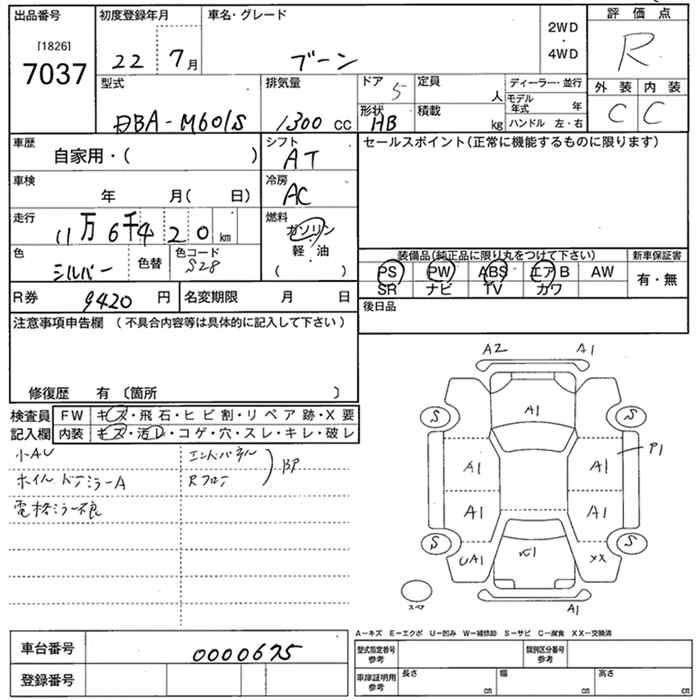 出品番号
[1826]
7037
初度登録年月
22 7月
車名・グレード
ブーン
2WD
・
4WD
評価点
R
外装 内装
C C
型式
DBA-M601S
排気量
1300 cc
ドア 5
形状 HB
定員 人
積載 kg
ディーラー・並行
モデル年式 年
ハンドル 左・右
車歴
自家用・( )
シフト
AT
車検
年 月( 日)
冷房
AC
走行
11万6千420 km
燃料
ガソリン
軽・油
( )
色
シルバー
色替
色コード
S28
R券 9420 円
名変期限 月 日
セールスポイント(正常に機能するものに限ります)
装備品(純正品に限り丸をつけて下さい)
PS PW ABS エアB AW
SR ナビ TV カワ
新車保証書
有・無
後日品
注意事項申告欄 (不具合内容等は具体的に記入して下さい)
修復歴 有 〔箇所 〕
検査員
記入欄
FW キズ・飛石・ヒビ割・リペア跡・X要
内装 キズ・汚レ・コゲ・穴・スレ・キレ・破レ
小AU
ホイル ドアミラーA
電格ミラー不良
エンドパネル
Rフロア
BP
A2 A1
S A1 S
A1 A1 P1
A1 A1
S S
UA1 XX
A1
スペア
A-キズ E-エクボ U-凹み W-補修跡 S-サビ C-腐食 XX-交換済
車台番号 0000675
登録番号
型式指定番号
参考
類別区分番号
参考
車庫証明用
参考
長さ cm
幅 cm
高さ cm